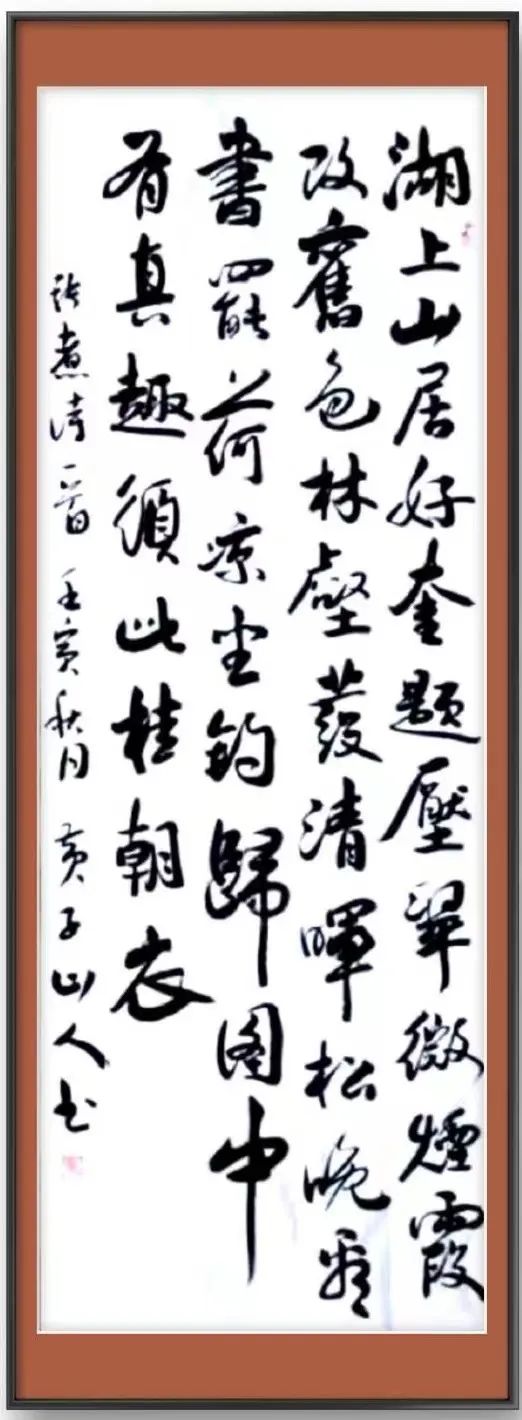 湖上山居好奎题壓翠微煙霞
改舊色林壑發清暉松晚看
書罷荷凉坐釣歸图中
有真趣須此桂朝衣
張煮诗一首 壬寅秋月 黄子山人书